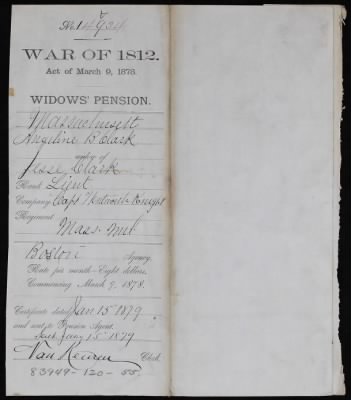 No. 14934
WAR OF 1812.
Act of March 9, 1878.
WIDOWS' PENSION.
Massachusett
Angeline B Clark
widow of
Jesse Clark
Rank Lieut
Company Capt
Regiment
Mass. Mil
Boston Agency
Rate per month - Eight dollars.
Commencing March 9, 1878.
Certificate dated Jan 15 1879
and sent to Pension Agent.
Jany 15 1879
Van Keuren Clerk
83949-120-55.